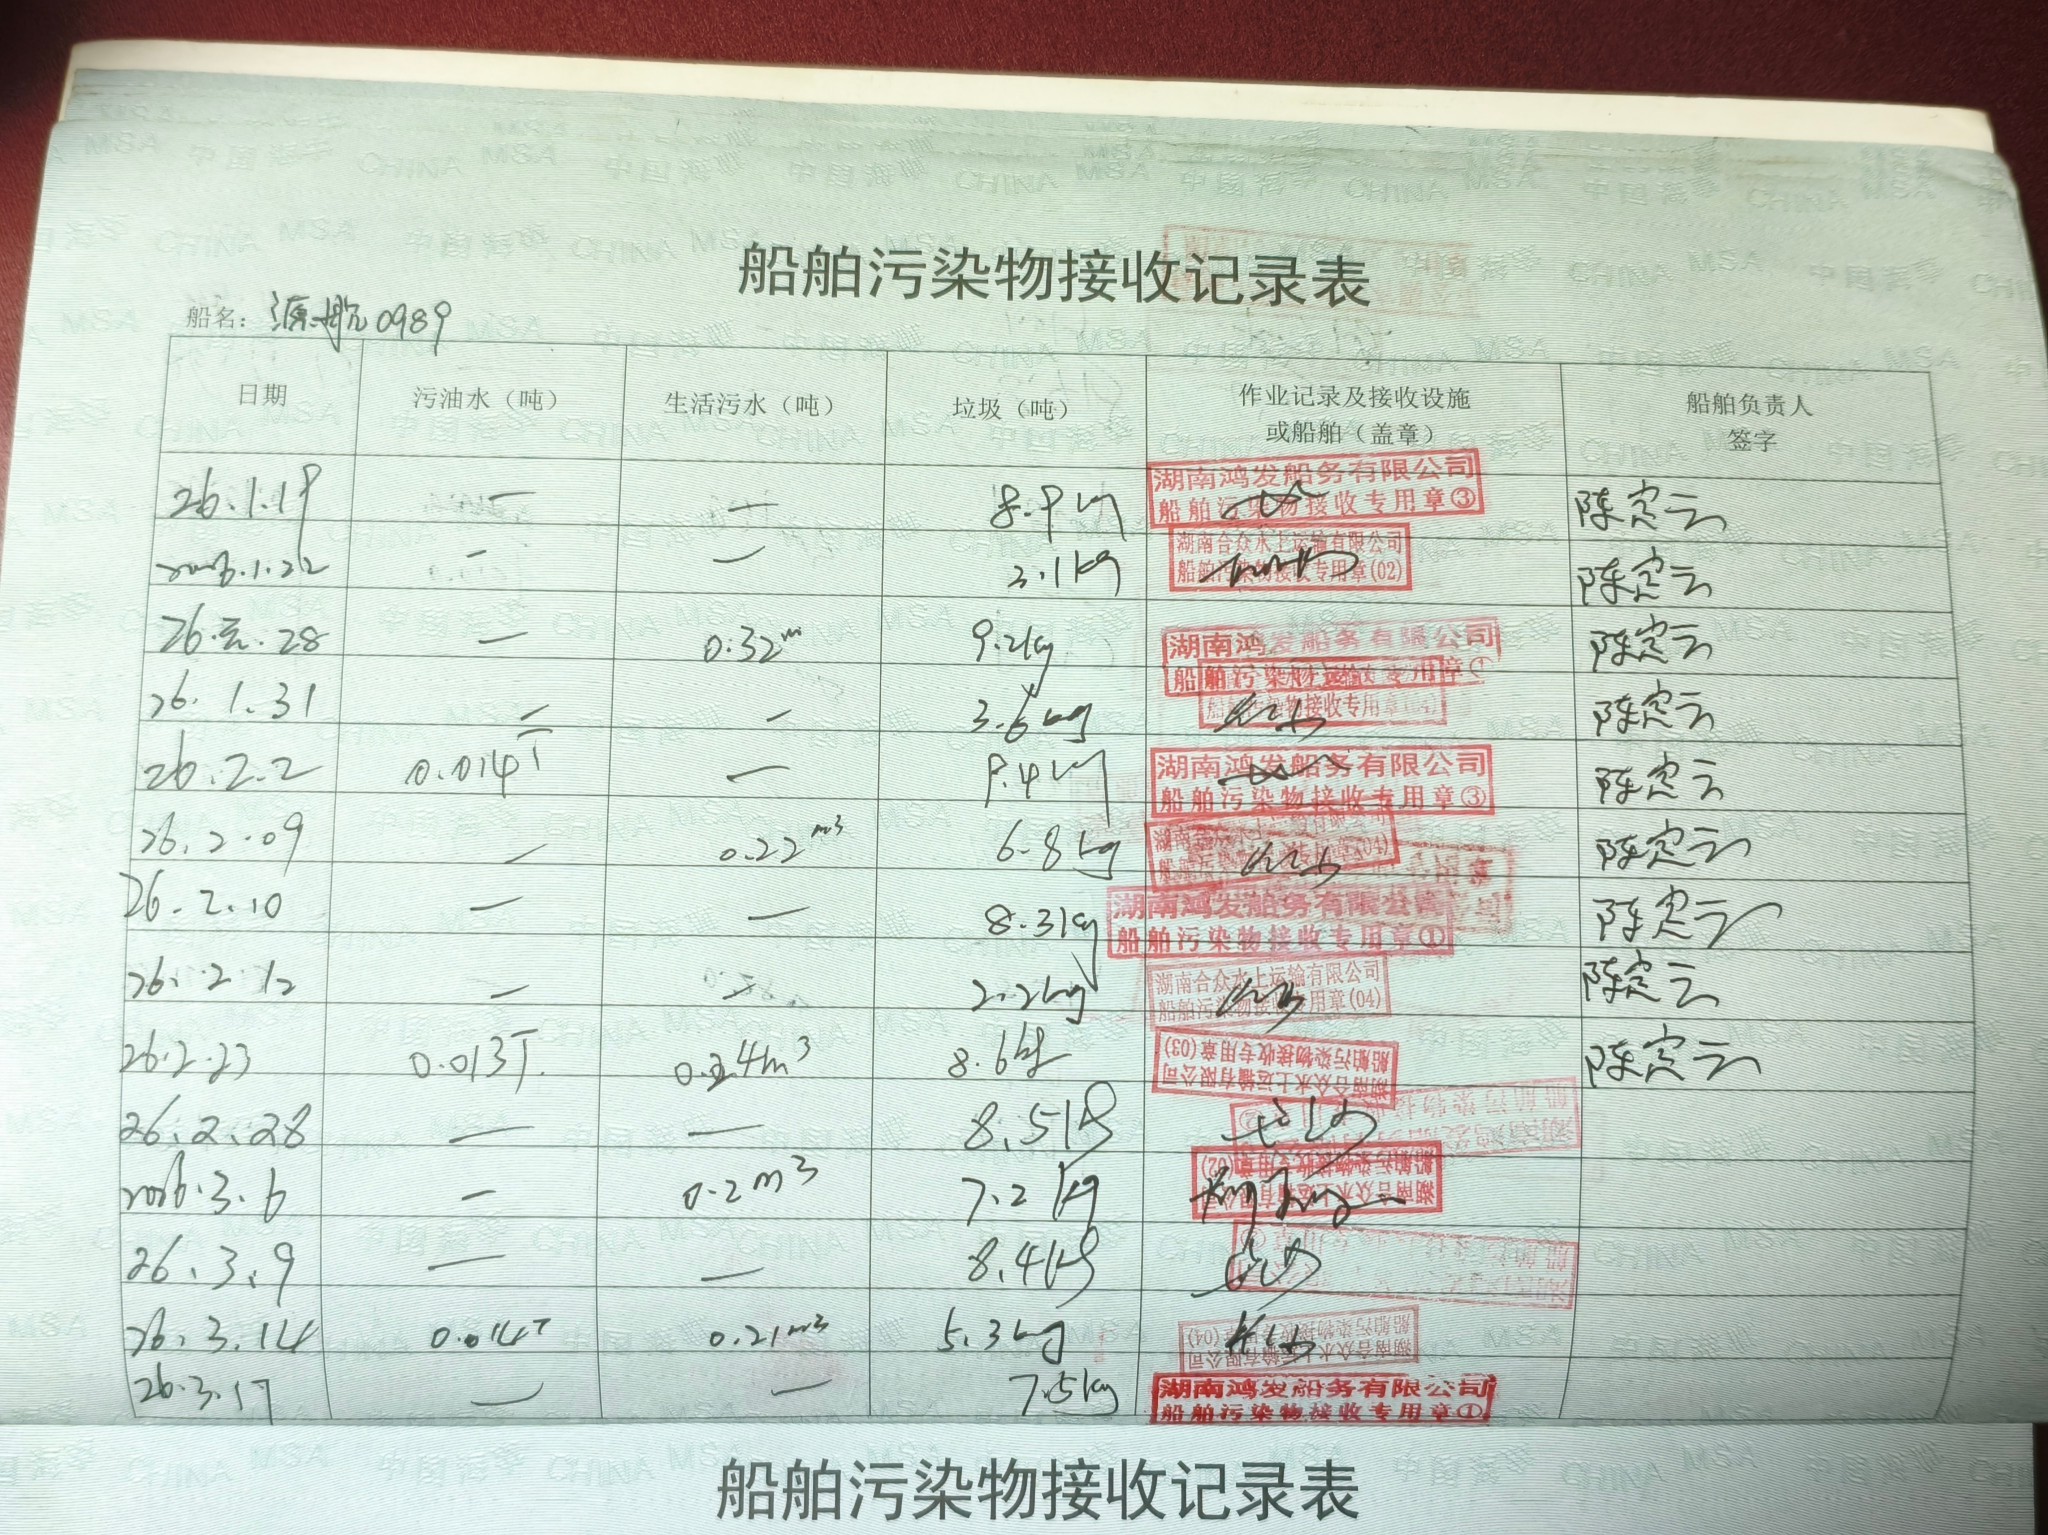 船舶污染物接收记录表
船名: 源航0989
日期 污油水（吨） 生活污水（吨） 垃圾（吨） 作业记录及接收设施或船舶（盖章） 船舶负责人签字
26.1.19 — — 8.9kg 湖南鸿发船务有限公司 船舶污染物接收专用章③ 陈定云
2026.1.22 — — 3.1kg 湖南合众水上运输有限公司 船舶污染物接收专用章(02) 陈定云
26.元.28 — 0.32m 9.2kg 湖南鸿发船务有限公司 船舶污染物接收专用章① 陈定云
26.1.31 — — 3.6kg 船舶污染物接收专用章 陈定云
26.2.2 0.014T — 9.4kg 湖南鸿发船务有限公司 船舶污染物接收专用章③ 陈定云
26.2.09 — 0.22m3 6.8kg 湖南合众水上运输有限公司 船舶污染物接收专用章(04) 陈定云
26.2.10 — — 8.3kg 湖南鸿发船务有限公司 船舶污染物接收专用章① 陈定云
26.2.12 — — 2.2kg 湖南合众水上运输有限公司 船舶污染物接收专用章(04) 陈定云
26.2.23 0.013T. 0.24m3 8.6kg 湖南合众水上运输有限公司 船舶污染物接收专用章(03) 陈定云
26.2.28 — — 8.5kg
2026.3.6 — 0.2m3 7.2kg 湖南合众水上运输有限公司 船舶污染物接收专用章(02)
26.3.9 — — 8.4kg
26.3.14 0.014T 0.21m3 5.3kg 湖南合众水上运输有限公司 船舶污染物接收专用章(04)
26.3.17 — — 7.5kg 湖南鸿发船务有限公司 船舶污染物接收专用章①
船舶污染物接收记录表